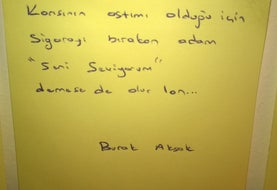 Karısının astımı olduğu için
Sigarayı bırakan adam
"Seni Seviyorum"
demese de olur lan...
Burak Aksak